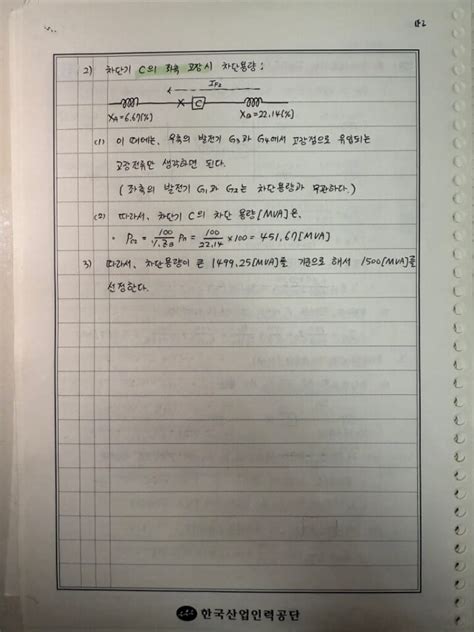 2) 차단기 C의 좌측 고장시 차단용량 :
IF2
C
XA=6.67[%] XB=22.14[%]
(1) 이 때에는, 우측의 발전기 G3과 G4에서 고장점으로 유입되는
고장전류만 생각하면 된다.
( 좌측의 발전기 G1과 G2는 차단용량과 무관하다. )
(2) 따라서, 차단기 C의 차단 용량[MVA]은,
= 100/22.14 ×100 = 451.67[MVA]
3) 따라서, 차단용량이 큰 1499.25[MVA]를 기준으로 해서 1500[MVA]를
선정한다.
한국산업인력공단